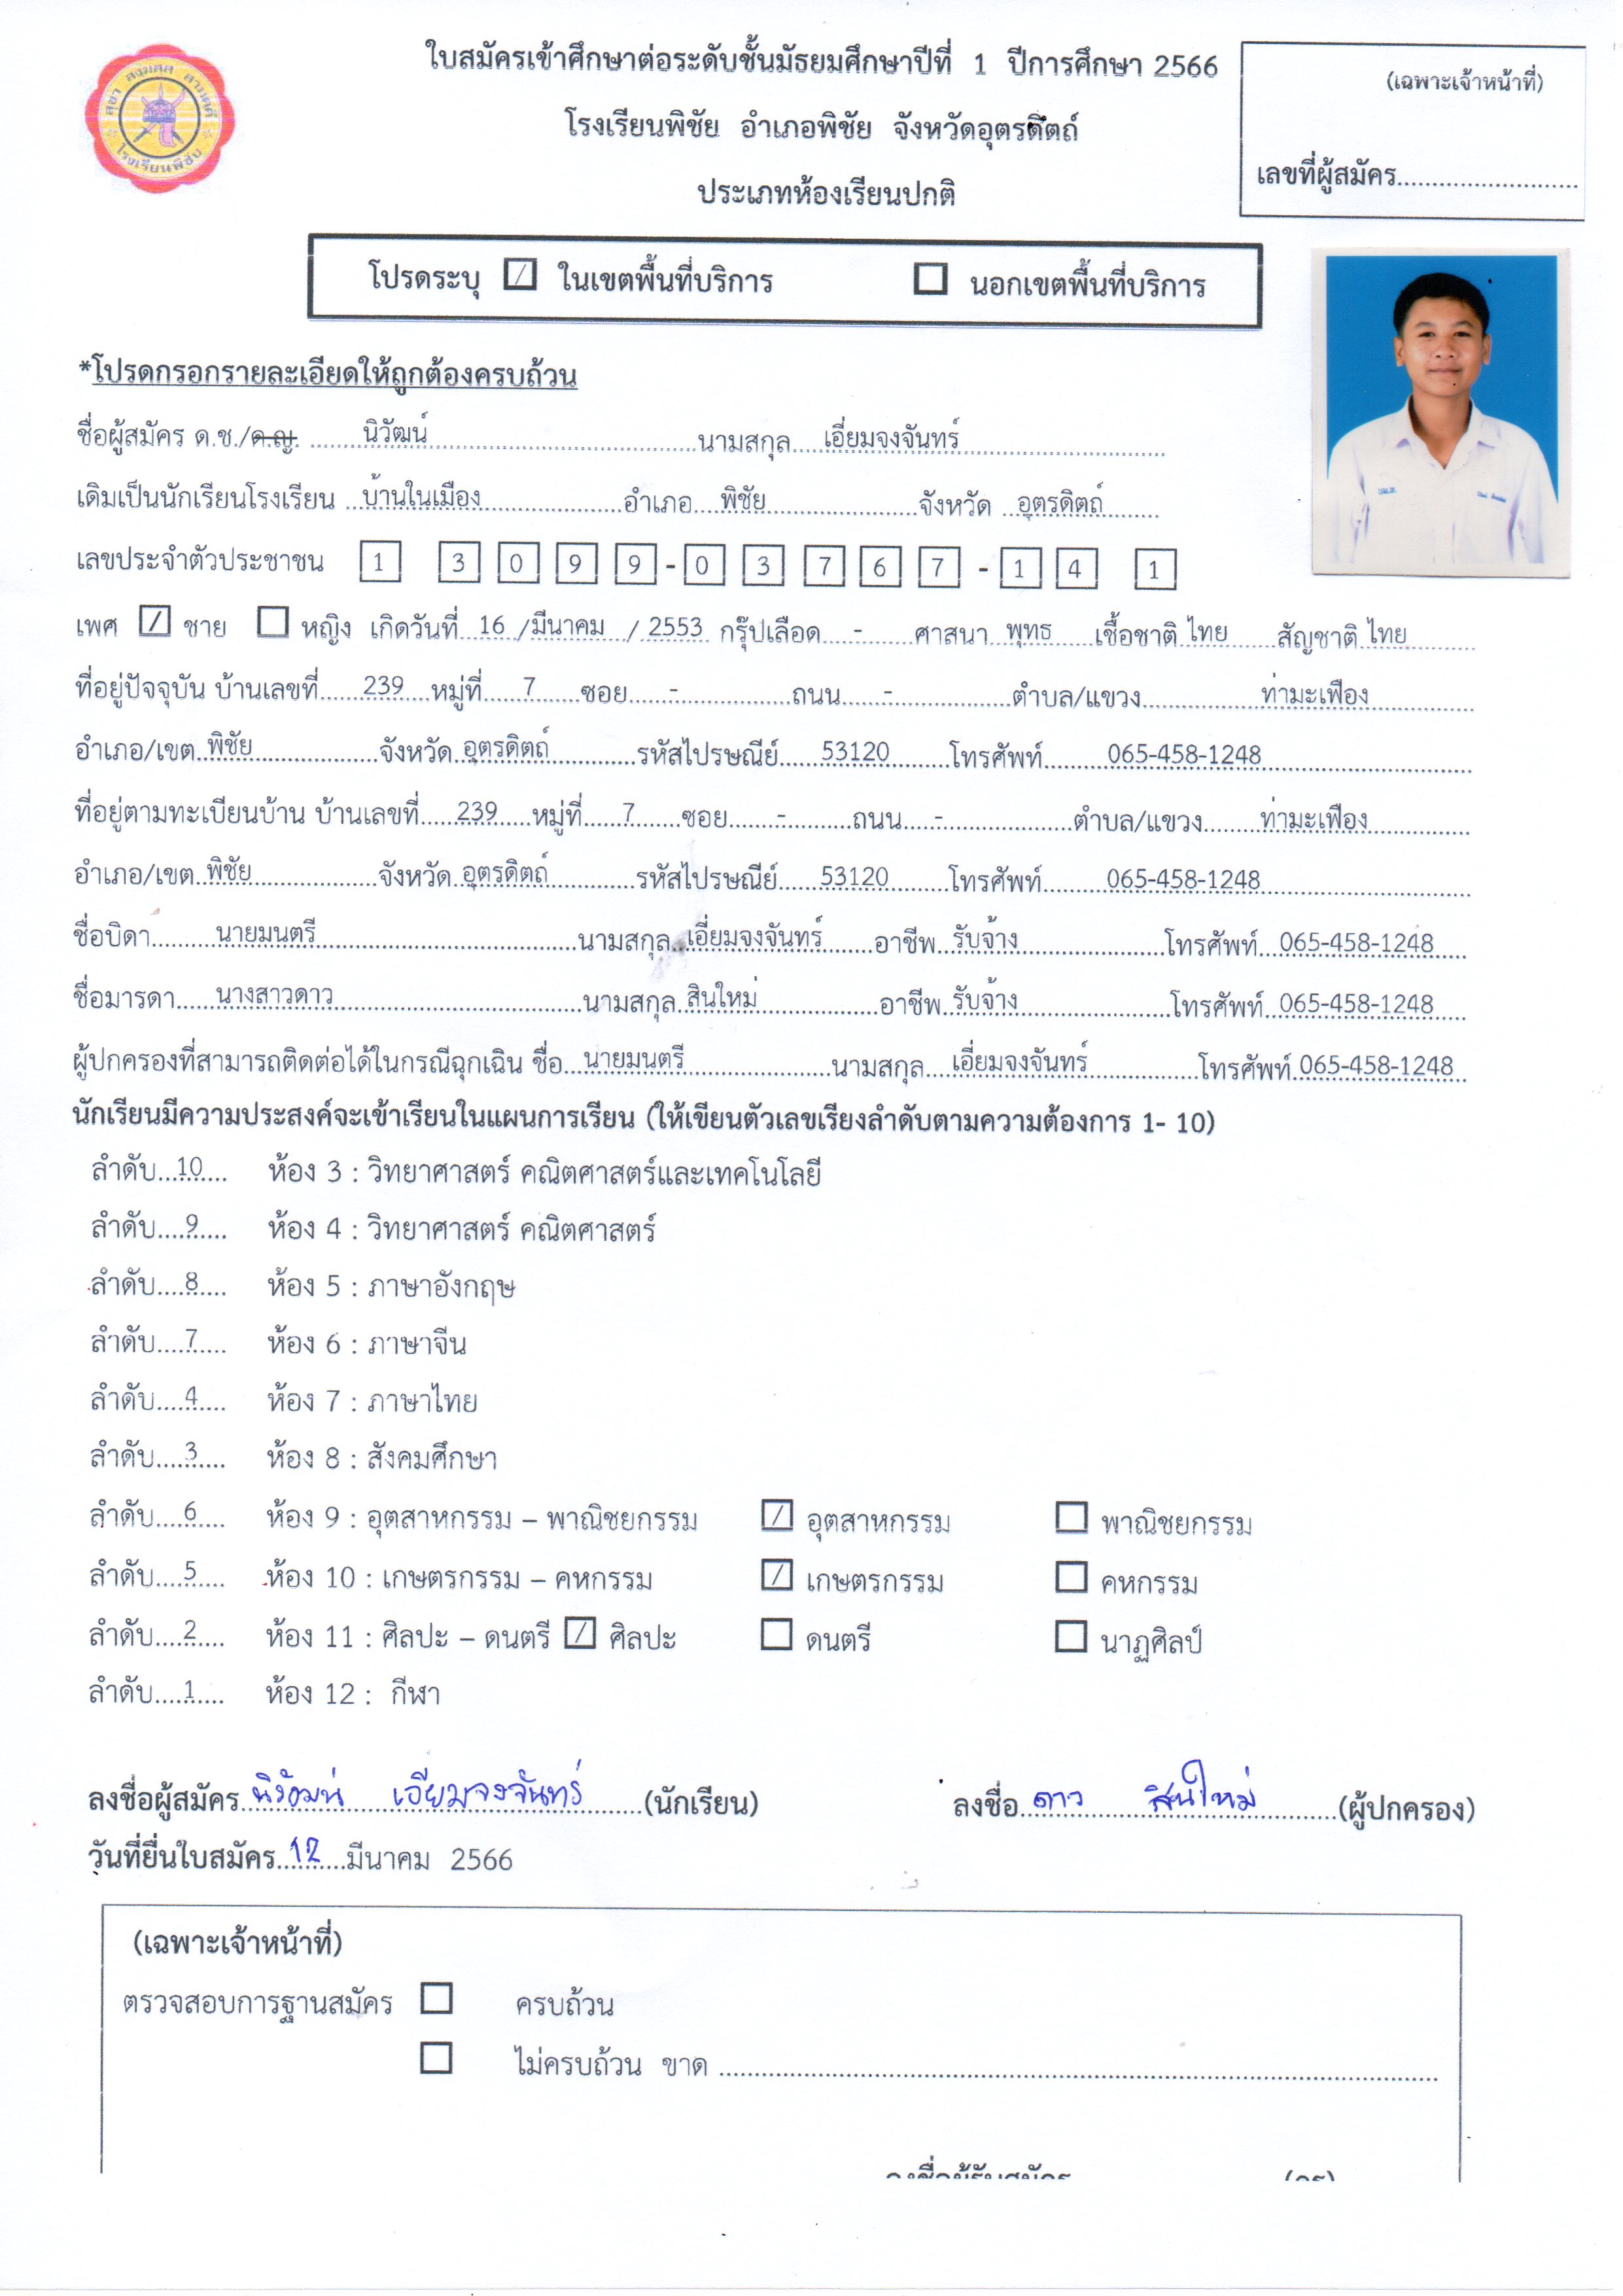 ใบสมัครเข้าศึกษาต่อระดับชั้นมัธยมศึกษาปีที่ 1 ปีการศึกษา 2566
(เฉพาะเจ้าหน้าที่)
โรงเรียนพิชัย อำเภอพิชัย จังหวัดอุตรดิตถ์
เลขที่ผู้สมัคร..........................
ประเภทห้องเรียนปกติ
โรงเรียนพิชัย
โปรดระบุ ☑ ในเขตพื้นที่บริการ ☐ นอกเขตพื้นที่บริการ
*โปรดกรอกรายละเอียดให้ถูกต้องครบถ้วน
ชื่อผู้สมัคร ด.ช./ด.ญ. นิวัฒน์ นามสกุล เอี่ยมจงจันทร์
เดิมเป็นนักเรียนโรงเรียน บ้านในเมือง อำเภอ พิชัย จังหวัด อุตรดิตถ์
เลขประจำตัวประชาชน 1 3 0 9 9 - 0 3 7 6 7 - 1 4 1
เพศ ☑ ชาย ☐ หญิง เกิดวันที่ 16 / มีนาคม / 2553 กรุ๊ปเลือด - ศาสนา พุทธ เชื้อชาติ ไทย สัญชาติ ไทย
ที่อยู่ปัจจุบัน บ้านเลขที่ 239 หมู่ที่ 7 ซอย - ถนน - ตำบล/แขวง ท่ามะเฟือง
อำเภอ/เขต พิชัย จังหวัด อุตรดิตถ์ รหัสไปรษณีย์ 53120 โทรศัพท์ 065-458-1248
ที่อยู่ตามทะเบียนบ้าน บ้านเลขที่ 239 หมู่ที่ 7 ซอย - ถนน - ตำบล/แขวง ท่ามะเฟือง
อำเภอ/เขต พิชัย จังหวัด อุตรดิตถ์ รหัสไปรษณีย์ 53120 โทรศัพท์ 065-458-1248
ชื่อบิดา นายมนตรี นามสกุล เอี่ยมจงจันทร์ อาชีพ รับจ้าง โทรศัพท์ 065-458-1248
ชื่อมารดา นางสาวดาว นามสกุล สินใหม่ อาชีพ รับจ้าง โทรศัพท์ 065-458-1248
ผู้ปกครองที่สามารถติดต่อได้ในกรณีฉุกเฉิน ชื่อ นายมนตรี นามสกุล เอี่ยมจงจันทร์ โทรศัพท์ 065-458-1248
นักเรียนมีความประสงค์จะเข้าเรียนในแผนการเรียน (ให้เขียนตัวเลขเรียงลำดับตามความต้องการ 1- 10)
ลำดับ 10 ห้อง 3 : วิทยาศาสตร์ คณิตศาสตร์และเทคโนโลยี
ลำดับ 9 ห้อง 4 : วิทยาศาสตร์ คณิตศาสตร์
ลำดับ 8 ห้อง 5 : ภาษาอังกฤษ
ลำดับ 7 ห้อง 6 : ภาษาจีน
ลำดับ 4 ห้อง 7 : ภาษาไทย
ลำดับ 3 ห้อง 8 : สังคมศึกษา
ลำดับ 6 ห้อง 9 : อุตสาหกรรม – พาณิชยกรรม ☑ อุตสาหกรรม ☐ พาณิชยกรรม
ลำดับ 5 ห้อง 10 : เกษตรกรรม – คหกรรม ☑ เกษตรกรรม ☐ คหกรรม
ลำดับ 2 ห้อง 11 : ศิลปะ – ดนตรี ☑ ศิลปะ ☐ ดนตรี ☐ นาฏศิลป์
ลำดับ 1 ห้อง 12 : กีฬา
ลงชื่อผู้สมัคร เอี่ยมจงจันทร์ (นักเรียน) ลงชื่อ ดาว สินใหม่ (ผู้ปกครอง)
วันที่ยื่นใบสมัคร 12 มีนาคม 2566
(เฉพาะเจ้าหน้าที่)
ตรวจสอบการฐานสมัคร ☐ ครบถ้วน
☐ ไม่ครบถ้วน ขาด